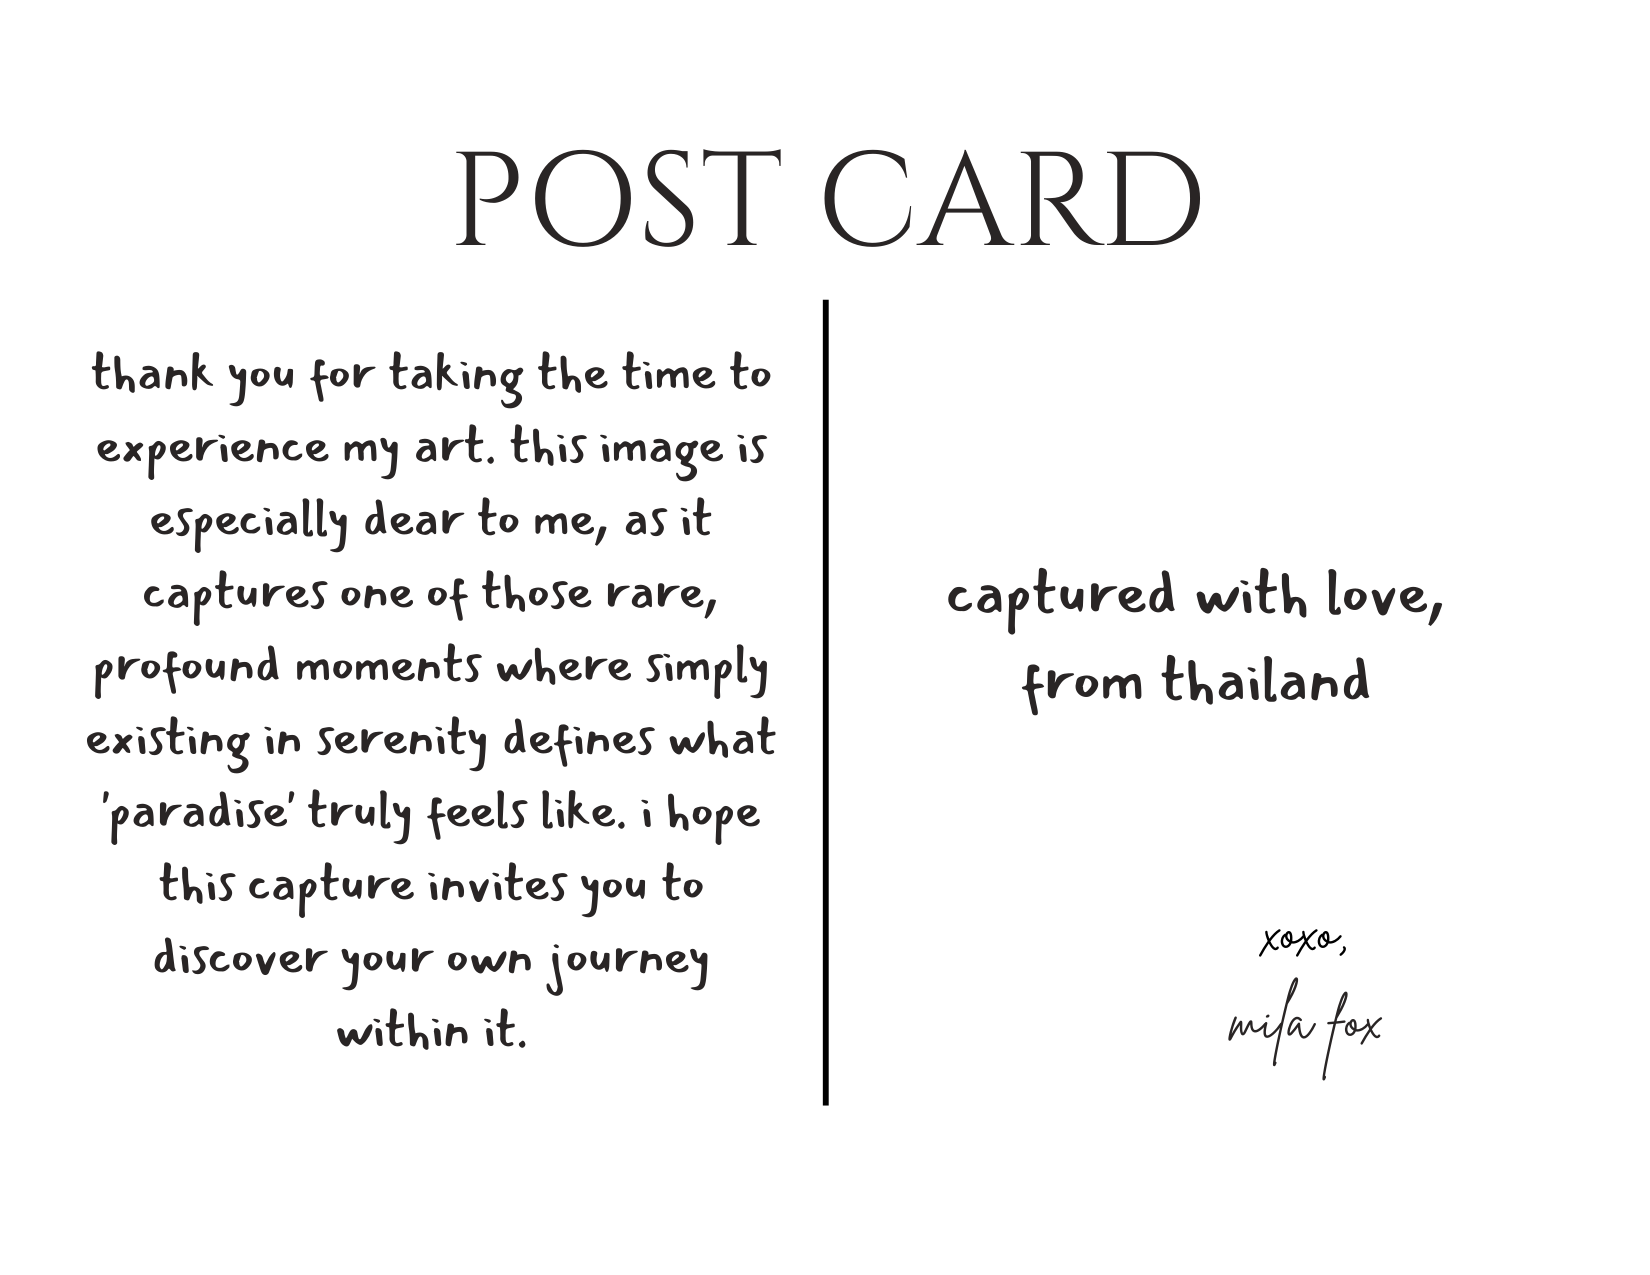 POST CARD
thank you for taking the time to
experience my art. this image is
especially dear to me, as it
captures one of those rare,
profound moments where simply
existing in serenity defines what
'paradise' truly feels like. i hope
this capture invites you to
discover your own journey
within it.
captured with love,
from thailand
xoxo,
mila fox